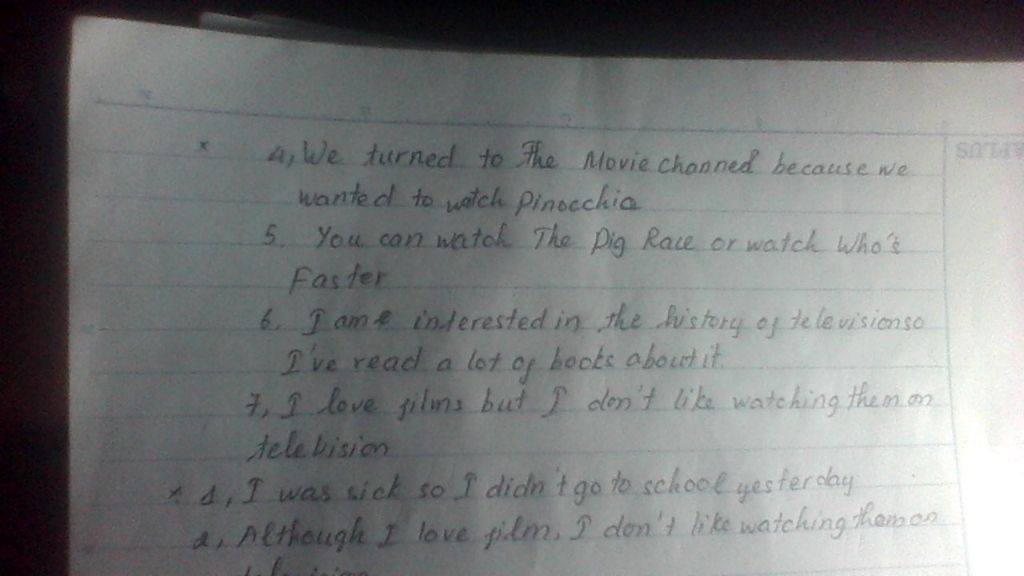 4, We turned to The Movie channed because we
wanted to watch Pinocchio
5. You can watch The Pig Race or watch Who's
Faster
6. I am interested in the history of television so
I've read a lot of books about it.
7, I love films but I don't like watching them on
telebision
* 1, I was sick so I didn't go to school yesterday
2, Although I love film, I don't like watching them on
television